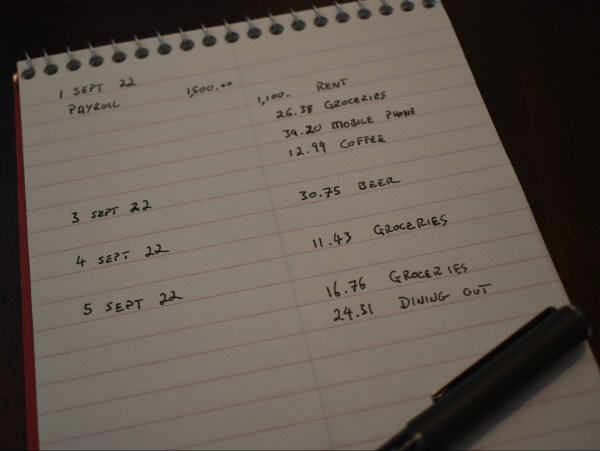 1 SEPT 22
PAYROLL 1,500.00 1,100. RENT
26.38 GROCERIES
39.20 MOBILE PHONE
12.99 COFFEE
3 SEPT 22 30.75 BEER
4 SEPT 22 11.43 GROCERIES
5 SEPT 22 16.76 GROCERIES
24.31 DINING OUT